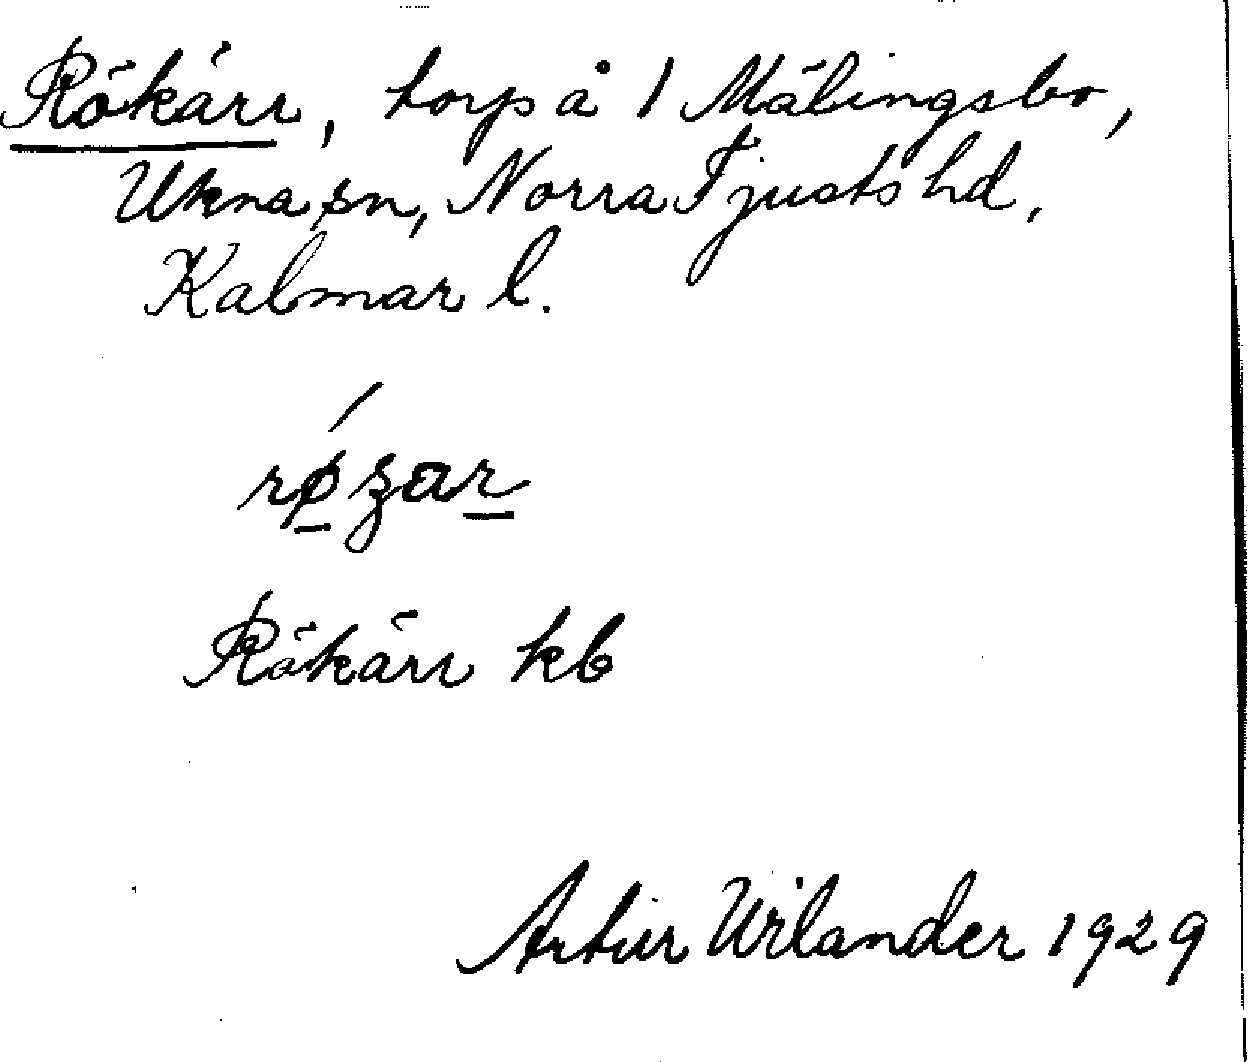 Rökärr, torp å 1 Mälingsbo,
Ukna sn, Norra Tjusts hd,
Kalmar l.
røzar
Rökärr kb
Artur Wilander 1929